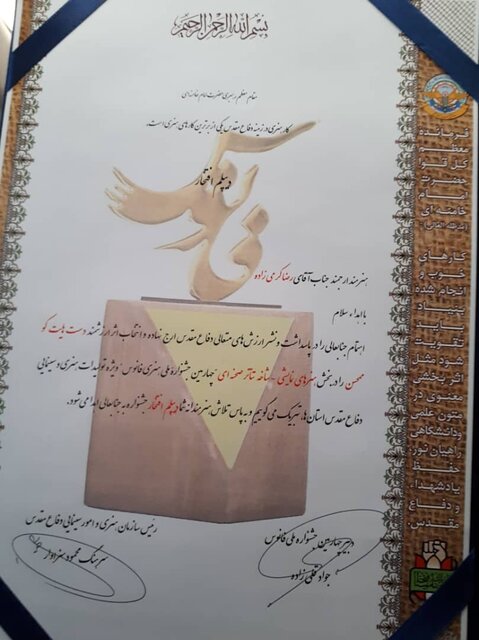 بسم الله الرحمن الرحیم
مقام معظم رهبری حضرت امام خامنه‌ای
کار هنری در زمینه دفاع مقدس یکی از برترین کارهای هنری است.
دیپلم افتخار
هنرمند ارجمند جناب آقای رضا کرمی زاده
با اهداء سلام
اهتمام جنابعالی را در پاسداشت و نشر ارزش‌های متعالی دفاع مقدس ارج نهاده و انتخاب اثر ارزشمند دست هایت کو
محسن را در بخش هنرهای نمایشی - شاخه تئاتر صحنه‌ای چهارمین جشنواره ملی هنری فانوس "ویژه تولیدات هنری و سینمایی
دفاع مقدس استان‌ها، تبریک می گوییم و به پاس تلاش هنرمندانه شما دیپلم افتخار جشنواره به جنابعالی اهدا می شود.
دبیر چهارمین جشنواره ملی فانوس
جواد تقی زاده
رئیس سازمان هنری و امور سینمایی دفاع مقدس
سرهنگ محمود سبزوار
فرمانده
معظم
کل قوا
حضرت
امام
خامنه ای
(مدظله العالی):
کارهای
خوب و
انجام شده
بنیاد
باید
تقویت
شود مثل
اثر بخشی
معنوی در
متون علمی
ودانشگاهی
راهیان نور،
حفظ
یاد شهدا،
و دفاع
مقدس.